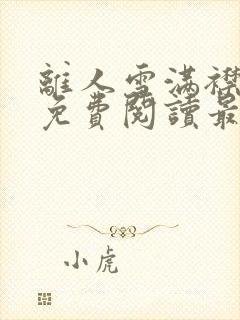 離人雪滿襟
免費閱讀最
小虎